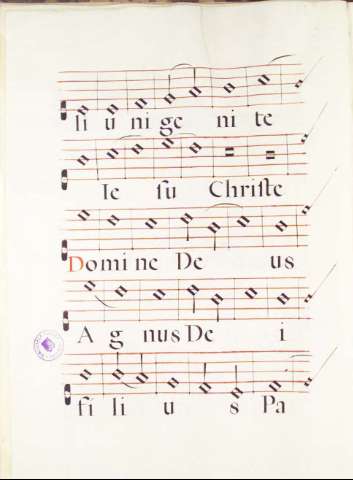 li u ni ge ni te
Ie ſu Chriſte
Domine De us
A g nus De i
fi li u s Pa